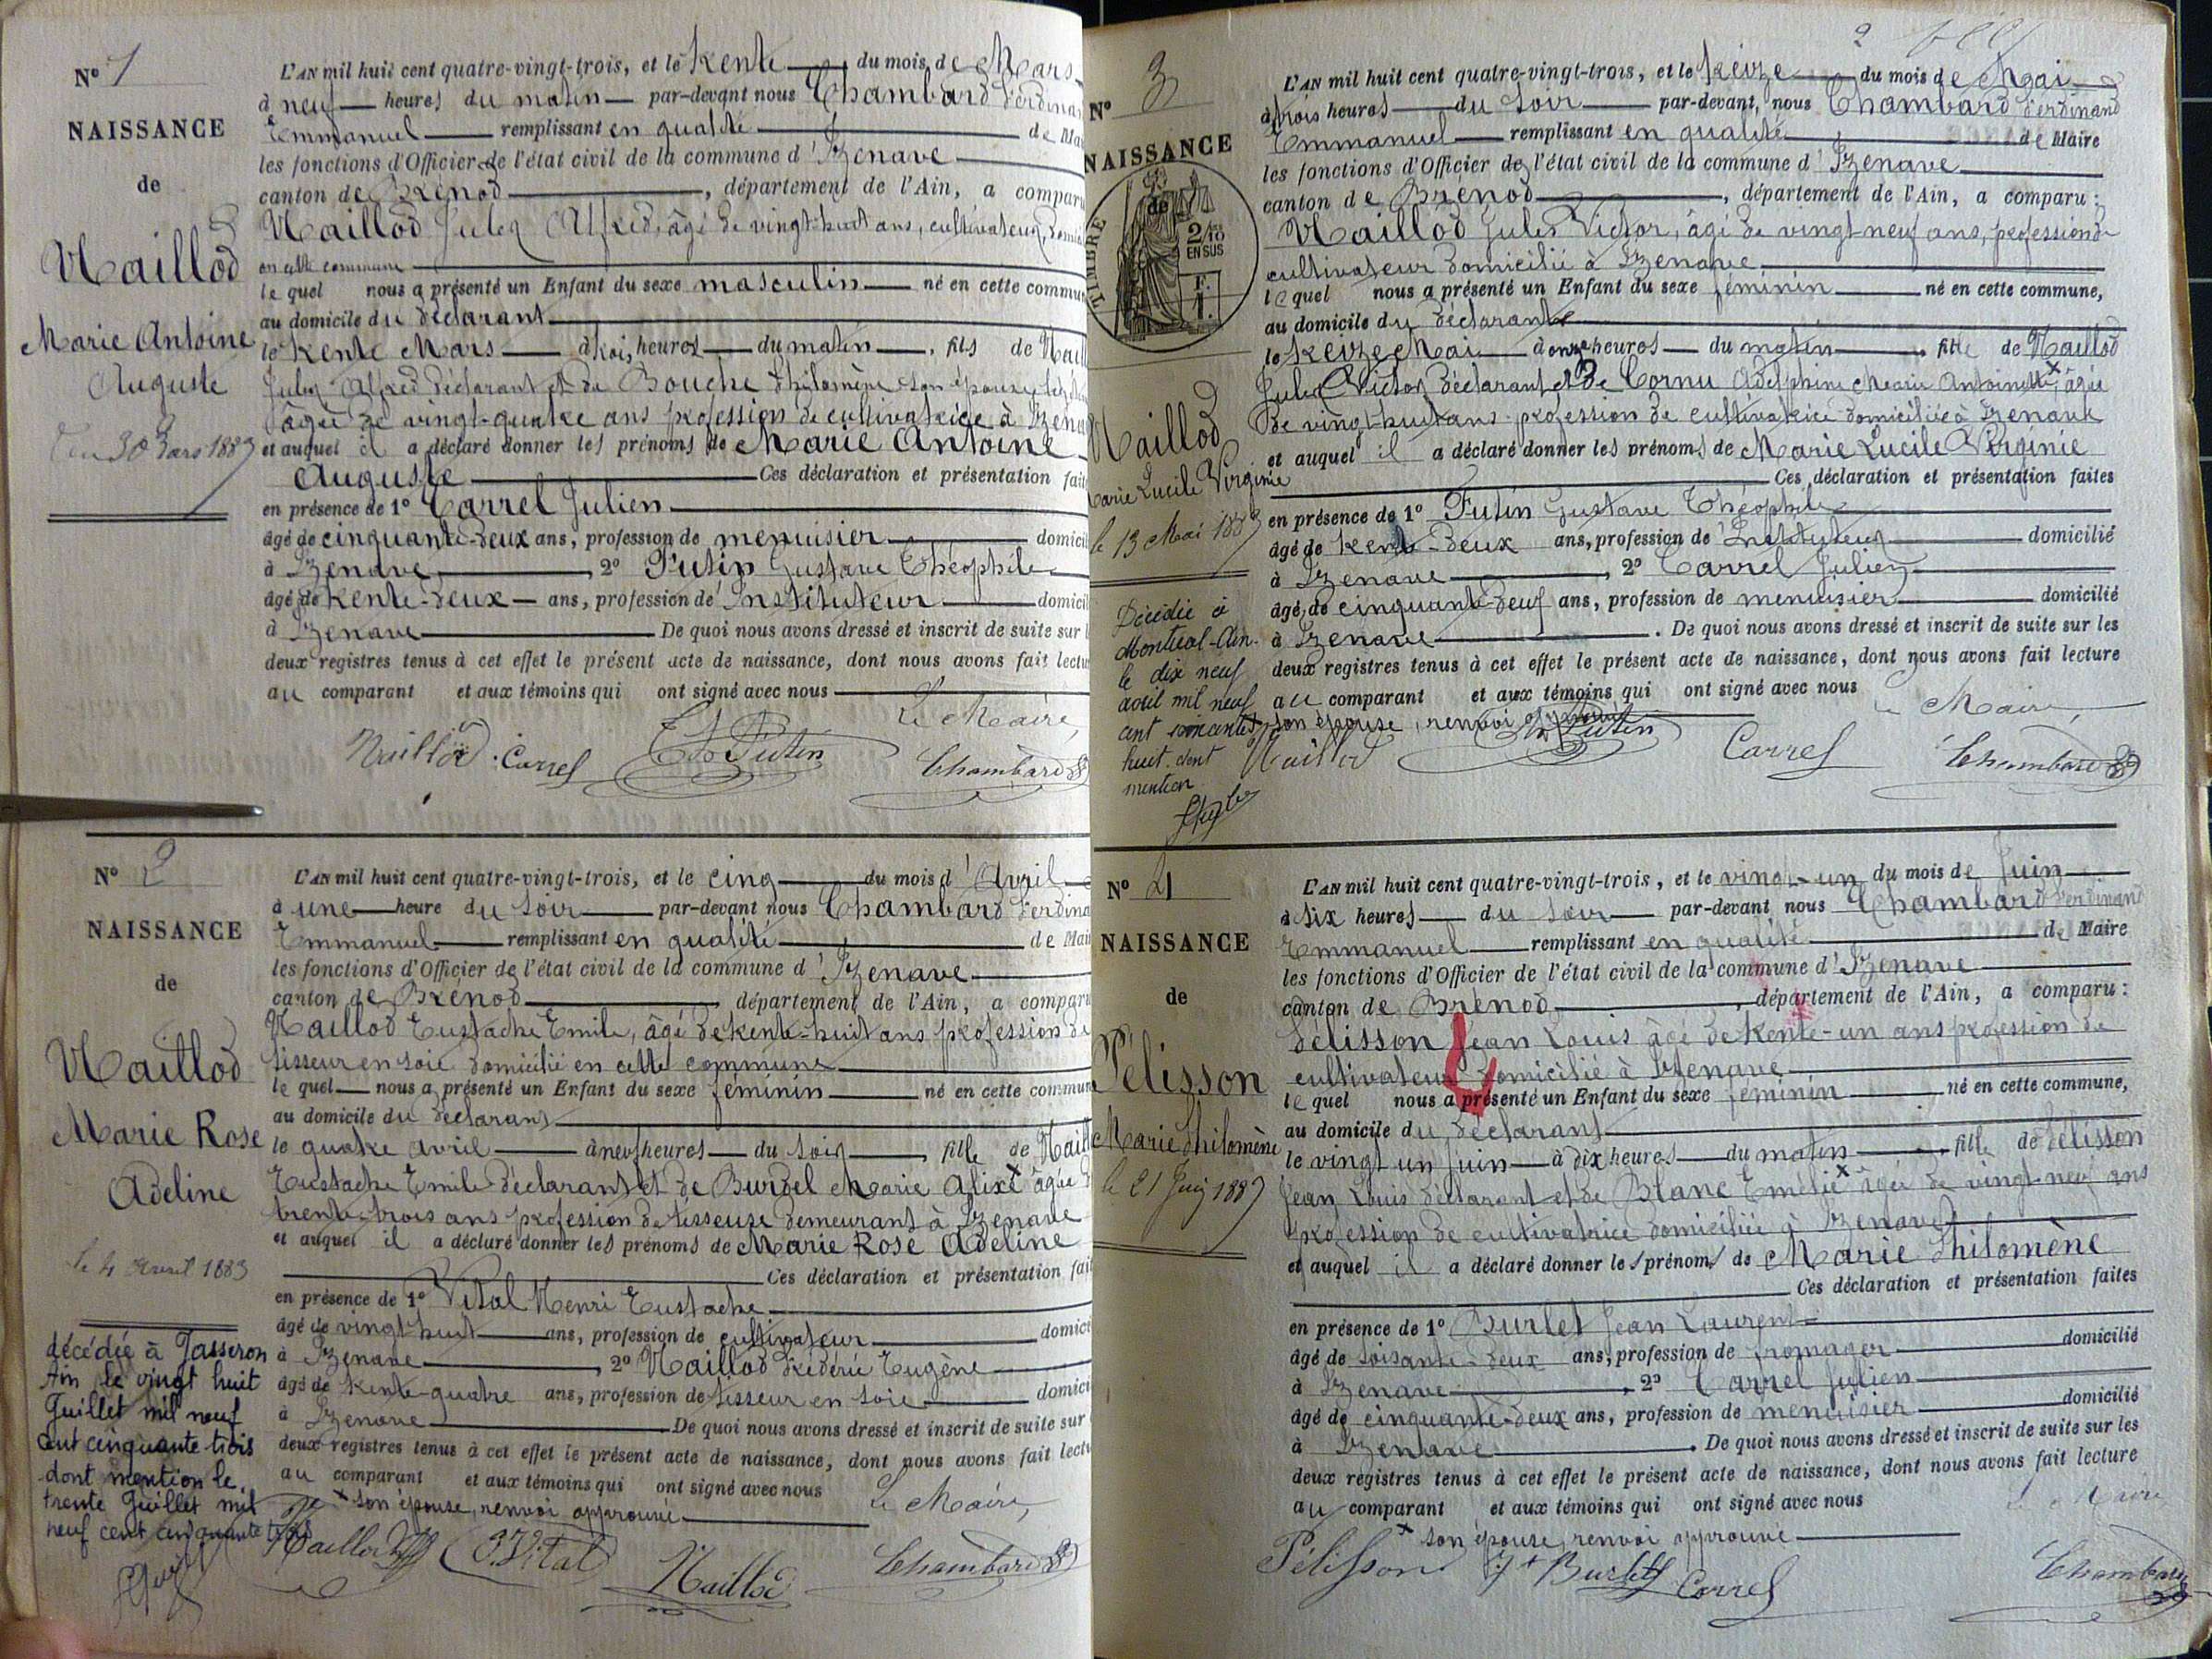 N° 1
NAISSANCE
de
Maillod
Marie Antoine
Auguste
30 Mars 1883
L'AN mil huit cent quatre-vingt-trois, et le trente du mois de Mars
à neuf heures du matin par-devant nous Chambard Ferdinand
Emmanuel remplissant en qualité de Maire
les fonctions d'Officier de l'état civil de la commune d'Izenave
canton de Brénod, département de l'Ain, a comparu
Maillod Jules Alfred, âgé de vingt-huit ans, cultivateur,
en cette commune
lequel nous a présenté un Enfant du sexe masculin né en cette commune
au domicile du déclarant
le trente Mars à trois heures du matin, fils de
Jules Alfred déclarant et de Bouche Philomène son épouse
âgée de vingt-quatre ans profession de cultivatrice à
et auquel il a déclaré donner les prénoms de Marie Antoine
Auguste Ces déclaration et présentation
en présence de 1° Carrel Julien
âgé de cinquante-deux ans, profession de menuisier
à Izenave, 2° Putin Gustave Théophile
âgé de trente-deux ans, profession d'Instituteur
à Izenave De quoi nous avons dressé et inscrit de suite sur
deux registres tenus à cet effet le présent acte de naissance, dont nous avons fait
au comparant et aux témoins qui ont signé avec nous
Le Maire,
Maillod Carrel Putin Chambard
N° 2
NAISSANCE
de
Maillod
Marie Rose
Adeline
le 4 Avril 1883
décédée à
Ain le vingt huit
Juillet mil neuf
cent cinquante trois
dont mention le
trente Juillet mil
neuf cent cinquante trois
L'AN mil huit cent quatre-vingt-trois, et le cinq du mois d'Avril
à une heure du soir par-devant nous Chambard
Emmanuel remplissant en qualité de
les fonctions d'Officier de l'état civil de la commune d'Izenave
canton de Brénod département de l'Ain, a
Maillod Eustache Emile, âgé de trente-huit ans profession de
tisseur en soie domicilié en cette commune
lequel nous a présenté un Enfant du sexe féminin né en cette
au domicile du déclarant
le quatre avril à neuf heures du soir, fille de
Eustache Emile déclarant et de Burdel Marie Alix x âgée
trente-trois ans profession de tisseuse demeurant à Izenave
et auquel il a déclaré donner les prénoms de Marie Rose Adeline
Ces déclaration et présentation
en présence de 1° Vital Henri Eustache
âgé de vingt-huit ans, profession de cultivateur
à Izenave, 2° Maillod Frédéric Eugène
âgé de trente-quatre ans, profession de tisseur en soie
à Izenave De quoi nous avons dressé et inscrit de suite sur
deux registres tenus à cet effet le présent acte de naissance, dont nous avons fait
au comparant et aux témoins qui ont signé avec nous
x son épouse, renvoi approuvé Le Maire,
Maillod Vital Maillod Chambard
N° 3
NAISSANCE
de
TIMBRE
2/10
EN SUS
F.
1.
Maillod
Marie Lucile Virginie
le 13 Mai 1883
Décédée à
Montréal-Ain
le dix neuf
avril mil neuf
cent cinquante
huit. dont
mention
L'AN mil huit cent quatre-vingt-trois, et le treize du mois de Mai
à trois heures du soir par-devant, nous Chambard Ferdinand
Emmanuel remplissant en qualité de Maire
les fonctions d'Officier de l'état civil de la commune d'Izenave
canton de Brénod, département de l'Ain, a comparu :
Maillod Jules Victor, âgé de vingt-neuf ans, profession de
cultivateur domicilié à Izenave
lequel nous a présenté un Enfant du sexe féminin né en cette commune,
au domicile du déclarant
le treize Mai à onze heures du matin, fille de Maillod
Jules Victor déclarant et de Cornu Adelphine Marie Antoinette x, âgée
de vingt-huit ans profession de cultivatrice domiciliée à Izenave
et auquel il a déclaré donner les prénoms de Marie Lucile Virginie
Ces déclaration et présentation faites
en présence de 1° Putin Gustave Théophile
âgé de trente-deux ans, profession d'Instituteur domicilié
à Izenave, 2° Carrel Julien
âgé de cinquante-deux ans, profession de menuisier domicilié
à Izenave. De quoi nous avons dressé et inscrit de suite sur les
deux registres tenus à cet effet le présent acte de naissance, dont nous avons fait lecture
au comparant et aux témoins qui ont signé avec nous
x son épouse, renvoi approuvé Le Maire,
Maillod Putin Carrel Chambard
N° 4
NAISSANCE
de
Pélisson
Marie Philomène
le 21 Juin 1883
L'AN mil huit cent quatre-vingt-trois, et le vingt-un du mois de Juin
à six heures du soir par-devant nous Chambard Ferdinand
Emmanuel remplissant en qualité de Maire
les fonctions d'Officier de l'état civil de la commune d'Izenave
canton de Brénod, département de l'Ain, a comparu :
Pélisson Jean Louis âgé de trente-un ans profession de
cultivateur domicilié à Izenave
lequel nous a présenté un Enfant du sexe féminin né en cette commune,
au domicile du déclarant
le vingt un Juin à dix heures du matin, fille de Pélisson
Jean Louis déclarant et de Blanc Emélie x âgée de vingt-neuf ans
profession de cultivatrice domiciliée à Izenave
et auquel il a déclaré donner les prénoms de Marie Philomène
Ces déclaration et présentation faites
en présence de 1° Burlet Jean Laurent
âgé de soixante-deux ans, profession de fromager domicilié
à Izenave, 2° Carrel Julien
âgé de cinquante-deux ans, profession de menuisier domicilié
à Izenave. De quoi nous avons dressé et inscrit de suite sur les
deux registres tenus à cet effet le présent acte de naissance, dont nous avons fait lecture
au comparant et aux témoins qui ont signé avec nous
x son épouse, renvoi approuvé Le Maire
Pélisson Burlet Carrel Chambard